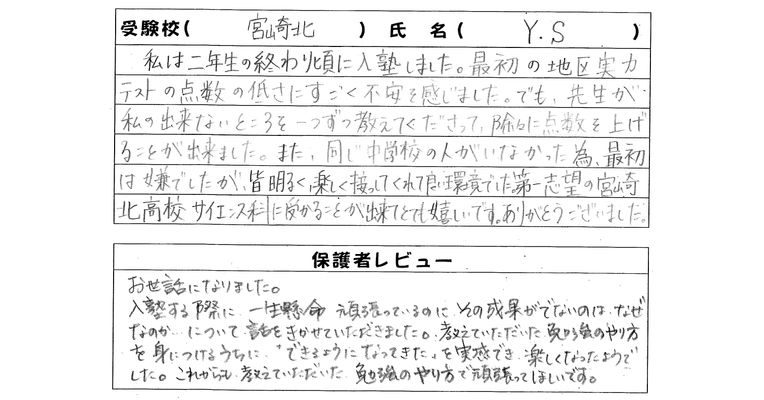 受験校( 宮崎北 ) 氏 名( Y.S )
私は二年生の終わり頃に入塾しました。最初の地区実力
テストの点数の低さにすごく不安を感じました。でも、先生が
私の出来ないところを一つずつ教えてくださって、除々に点数を上げ
ることが出来ました。また、同じ中学校の人がいなかった為、最初
は嫌でしたが、皆明るく、楽しく接ってくれて良い環境でした第一志望の宮崎
北高校サイエンス科に受かることが出来てとても嬉しいです。ありがとうございました。
保護者レビュー
お世話になりました。
入塾する際に 一生懸命 頑張っているのに その成果がでないのは なぜ
なのか について 話をきかせていただきました。教えていただいた 勉強のやり方
を 身につけるうちに "できるようになってきた" を 実感でき 楽しくなったようで
した。これからも 教えていただいた 勉強のやり方で頑張ってほしいです。